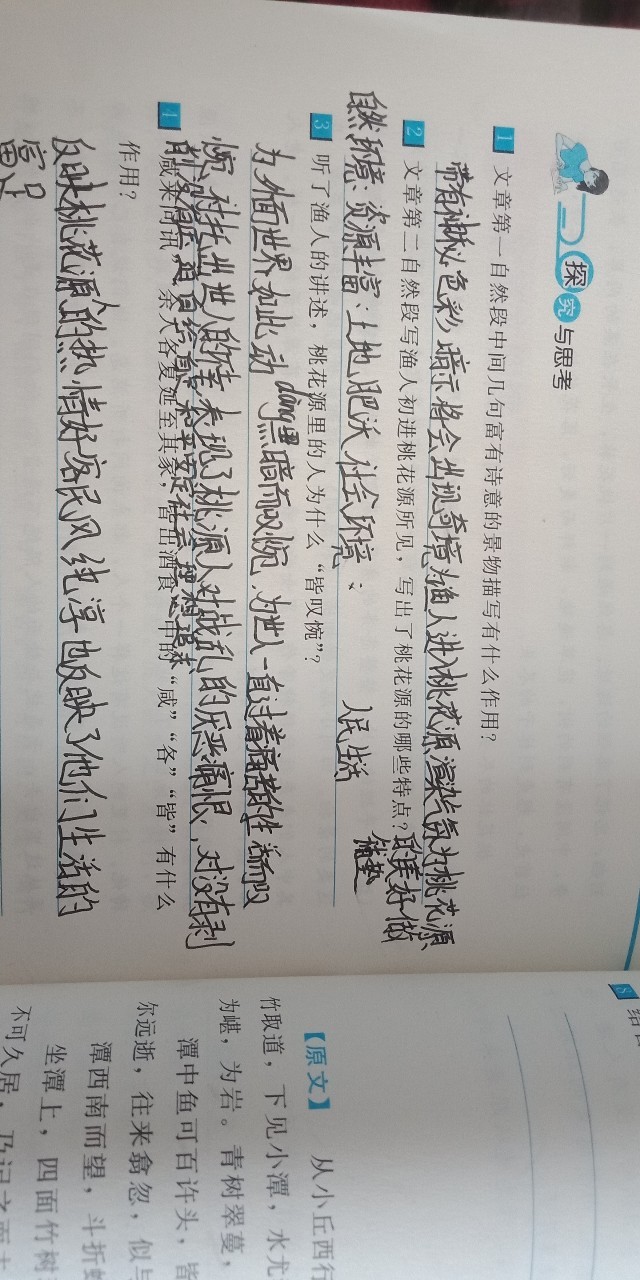 探究与思考
1 文章第一自然段中间几句富有诗意的景物描写有什么作用？
带有神秘色彩暗示将会出现奇境为渔人进入桃花源渲染气氛为桃花源
的美好做
铺垫
2 文章第二自然段写渔人初进桃花源所见，写出了桃花源的哪些特点？
自然环境：资源丰富：土地肥沃 社会环境： 人民生活
3 听了渔人的讲述，桃花源里的人为什么“皆叹惋”？
为外面世界如此动dàng黑暗而叹惋、为世人一直过着痛苦的生活而叹
惋、衬托出世人的 表现了桃源人对战乱的厌恶痛恨、对没有剥
4 “咸来问讯” “余人各复延至其家，皆出酒食”中的“咸”“各”“皆”有什么
作用？
反映桃花源人的热情好客民风纯淳也反映了他们生活的
富足
结
【原文】 从小丘西行
竹取道，下见小潭，水尤
为嵁，为岩。青树翠蔓，
潭中鱼可百许头，皆
尔远逝，往来翕忽，似与
潭西南而望，斗折蛇
坐潭上，四面竹树
不可久居，乃记之而去